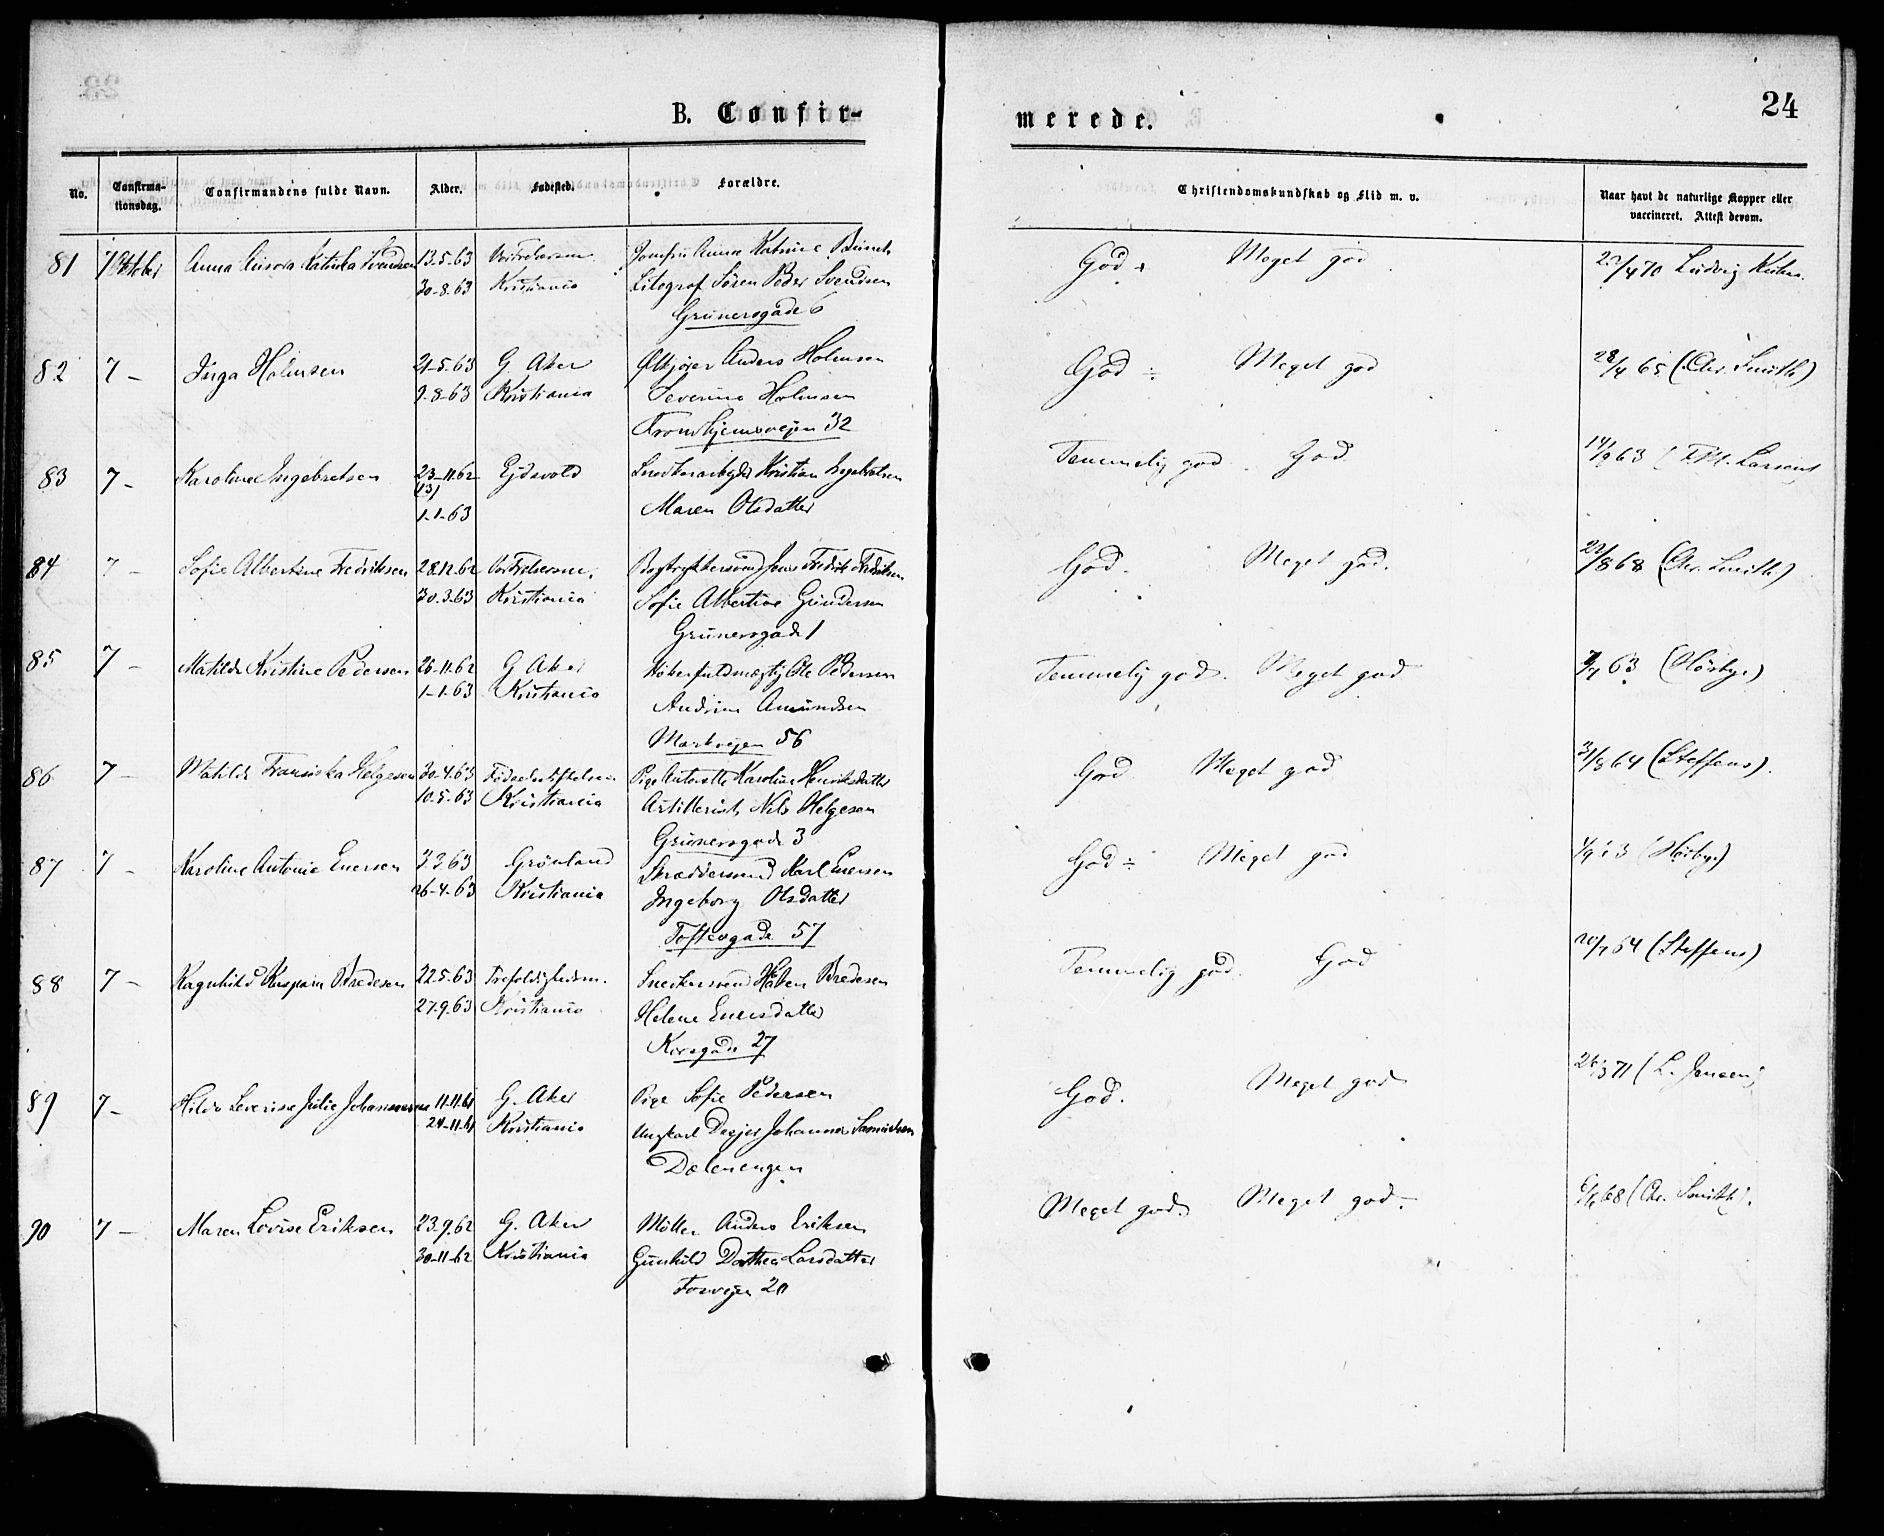 B. Confir-
merede.
24
No.
Confirma-
tionsdag.
Confirmandens fulde Navn.
Alder.
Fødested.
Forældre.
Christendomskundskab og Flid m. v.
Naar havt de naturlige Kopper eller
vaccineret. Attest derom.
81 7 Oktober Anna Svendsen 13-5-63 Vor Frelsersm. Jomfru Anna Katrine God + Meget god 22/4 70 Ludvig
30-8-63 Kristiania Litograf Sören Peder Svendsen
Grünersgade 6
82 7 – Inga Holmsen 21-5-63 G. Aker Anders Holmsen God ÷ Meget god 28/4 65 (Chr. Smith)
9-8-63 Kristiania Severine Holmsen
Trondhjemsvejen 32
83 7 – Karoline Ingebretsen 23-11-62 Ejdsvold Kristian Ingebretsen Temmelig god God 14/9 63 Larsen
(13)
1-1-63 Maren Olsdatter
84 7 – Sofie Albertine Fredriksen 28.12.62 Vor Frelsersm. Bogtrykkersvend Jens Fredrik Fredriksen God. Meget god. 22/8 68 (Chr. Smith)
30.3.63 Kristiania Sofie Albertine Gundersen
Grünersgade 1
85 7 – Matilde Kristine Pedersen 26-11-62 G. Aker Ole Pedersen Temmelig god. Meget god 63 (Hörbye)
1-1-63 Kristiania Andrine Amundsen
Markvejen 56
86 7 – Matilde Fransiska Helgesen 30-4-63 Födselsstiftelsen Pige Antonette Karoline Henriksdatter God Meget god 31/8 64 (Steffens).
10-5-63 Kristiania Artillerist Nils Helgesen
Grünersgade 3
87 7 – Karoline Antonie Enersen 3.3.63 Grönland Skræddersvend Karl Enersen God ÷ Meget god (Hörbye)
26-4-63 Kristiania Ingeborg Olsdatter
Toftesgade 57
88 7 – Ragnhild Bredesen 22.5-63 Trefoldighedsm. Snekkersvend Bredesen Temmelig god. God 20/7 64 (Steffens)
27-9-63 Kristiania Helene
Korsgade 27
89 7 – Hilda Severine Julie Johannesen 11-11-61 G. Aker Pige Sofie Pedersen God. Meget god 71 (L. Jensen)
24-11-61 Kristiania Ungkarl Johannes
Dælenengen
90 7 – Maren Lovise Eriksen 23-9-62 G. Aker Möller Anders Eriksen Meget god. Meget god. 68 (Chr. Smith).
30-11-62 Kristiania Gunhild Dorthea Larsdatter
Fosvejen 20